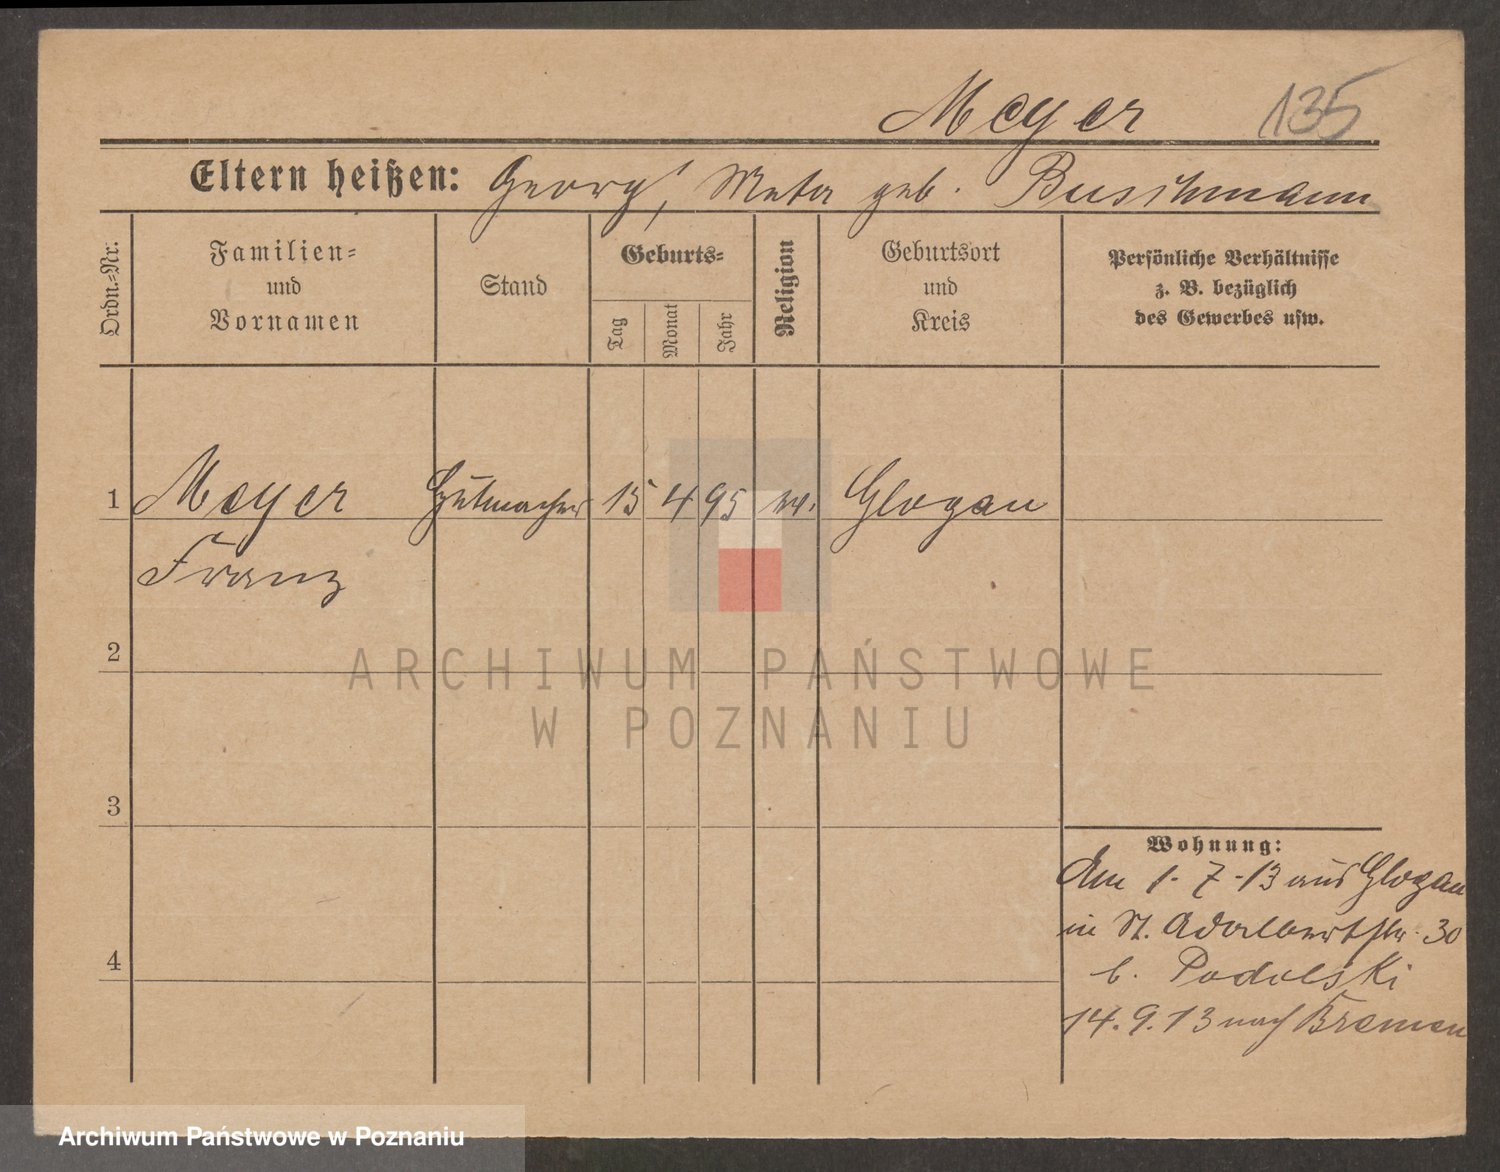 Meyer 135
Eltern heißen: Georg, Meta geb. Buschmann
Ordn.=Nr.
Familien=
und
Vornamen
Stand
Geburts=
Tag
Monat
Jahr
Religion
Geburtsort
und
Kreis
Persönliche Verhältnisse
z. B. bezüglich
des Gewerbes usw.
1 Meyer Hutmacher 15 4 95 ev. Glogau
Franz
2
3
4
Wohnung:
Am 1-7-13 aus Glogau
in St. Adalbertstr. 30
b. Podolski
14.9.13 nach Bremen
ARCHIWUM PAŃSTWOWE
W POZNANIU
Archiwum Państwowe w Poznaniu